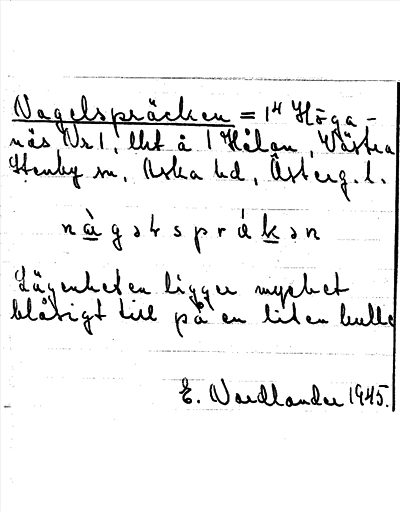 Nagelspräcken = 1⁴ Höga-
näs Nr 1, lht å 1 Hålan, Västra
Stenby sn, Aska hd, Österg. l.
nàgəlspräkən
Lägenheten ligger mycket
blåsigt till på en liten kulle
E. Nordlander 1945.